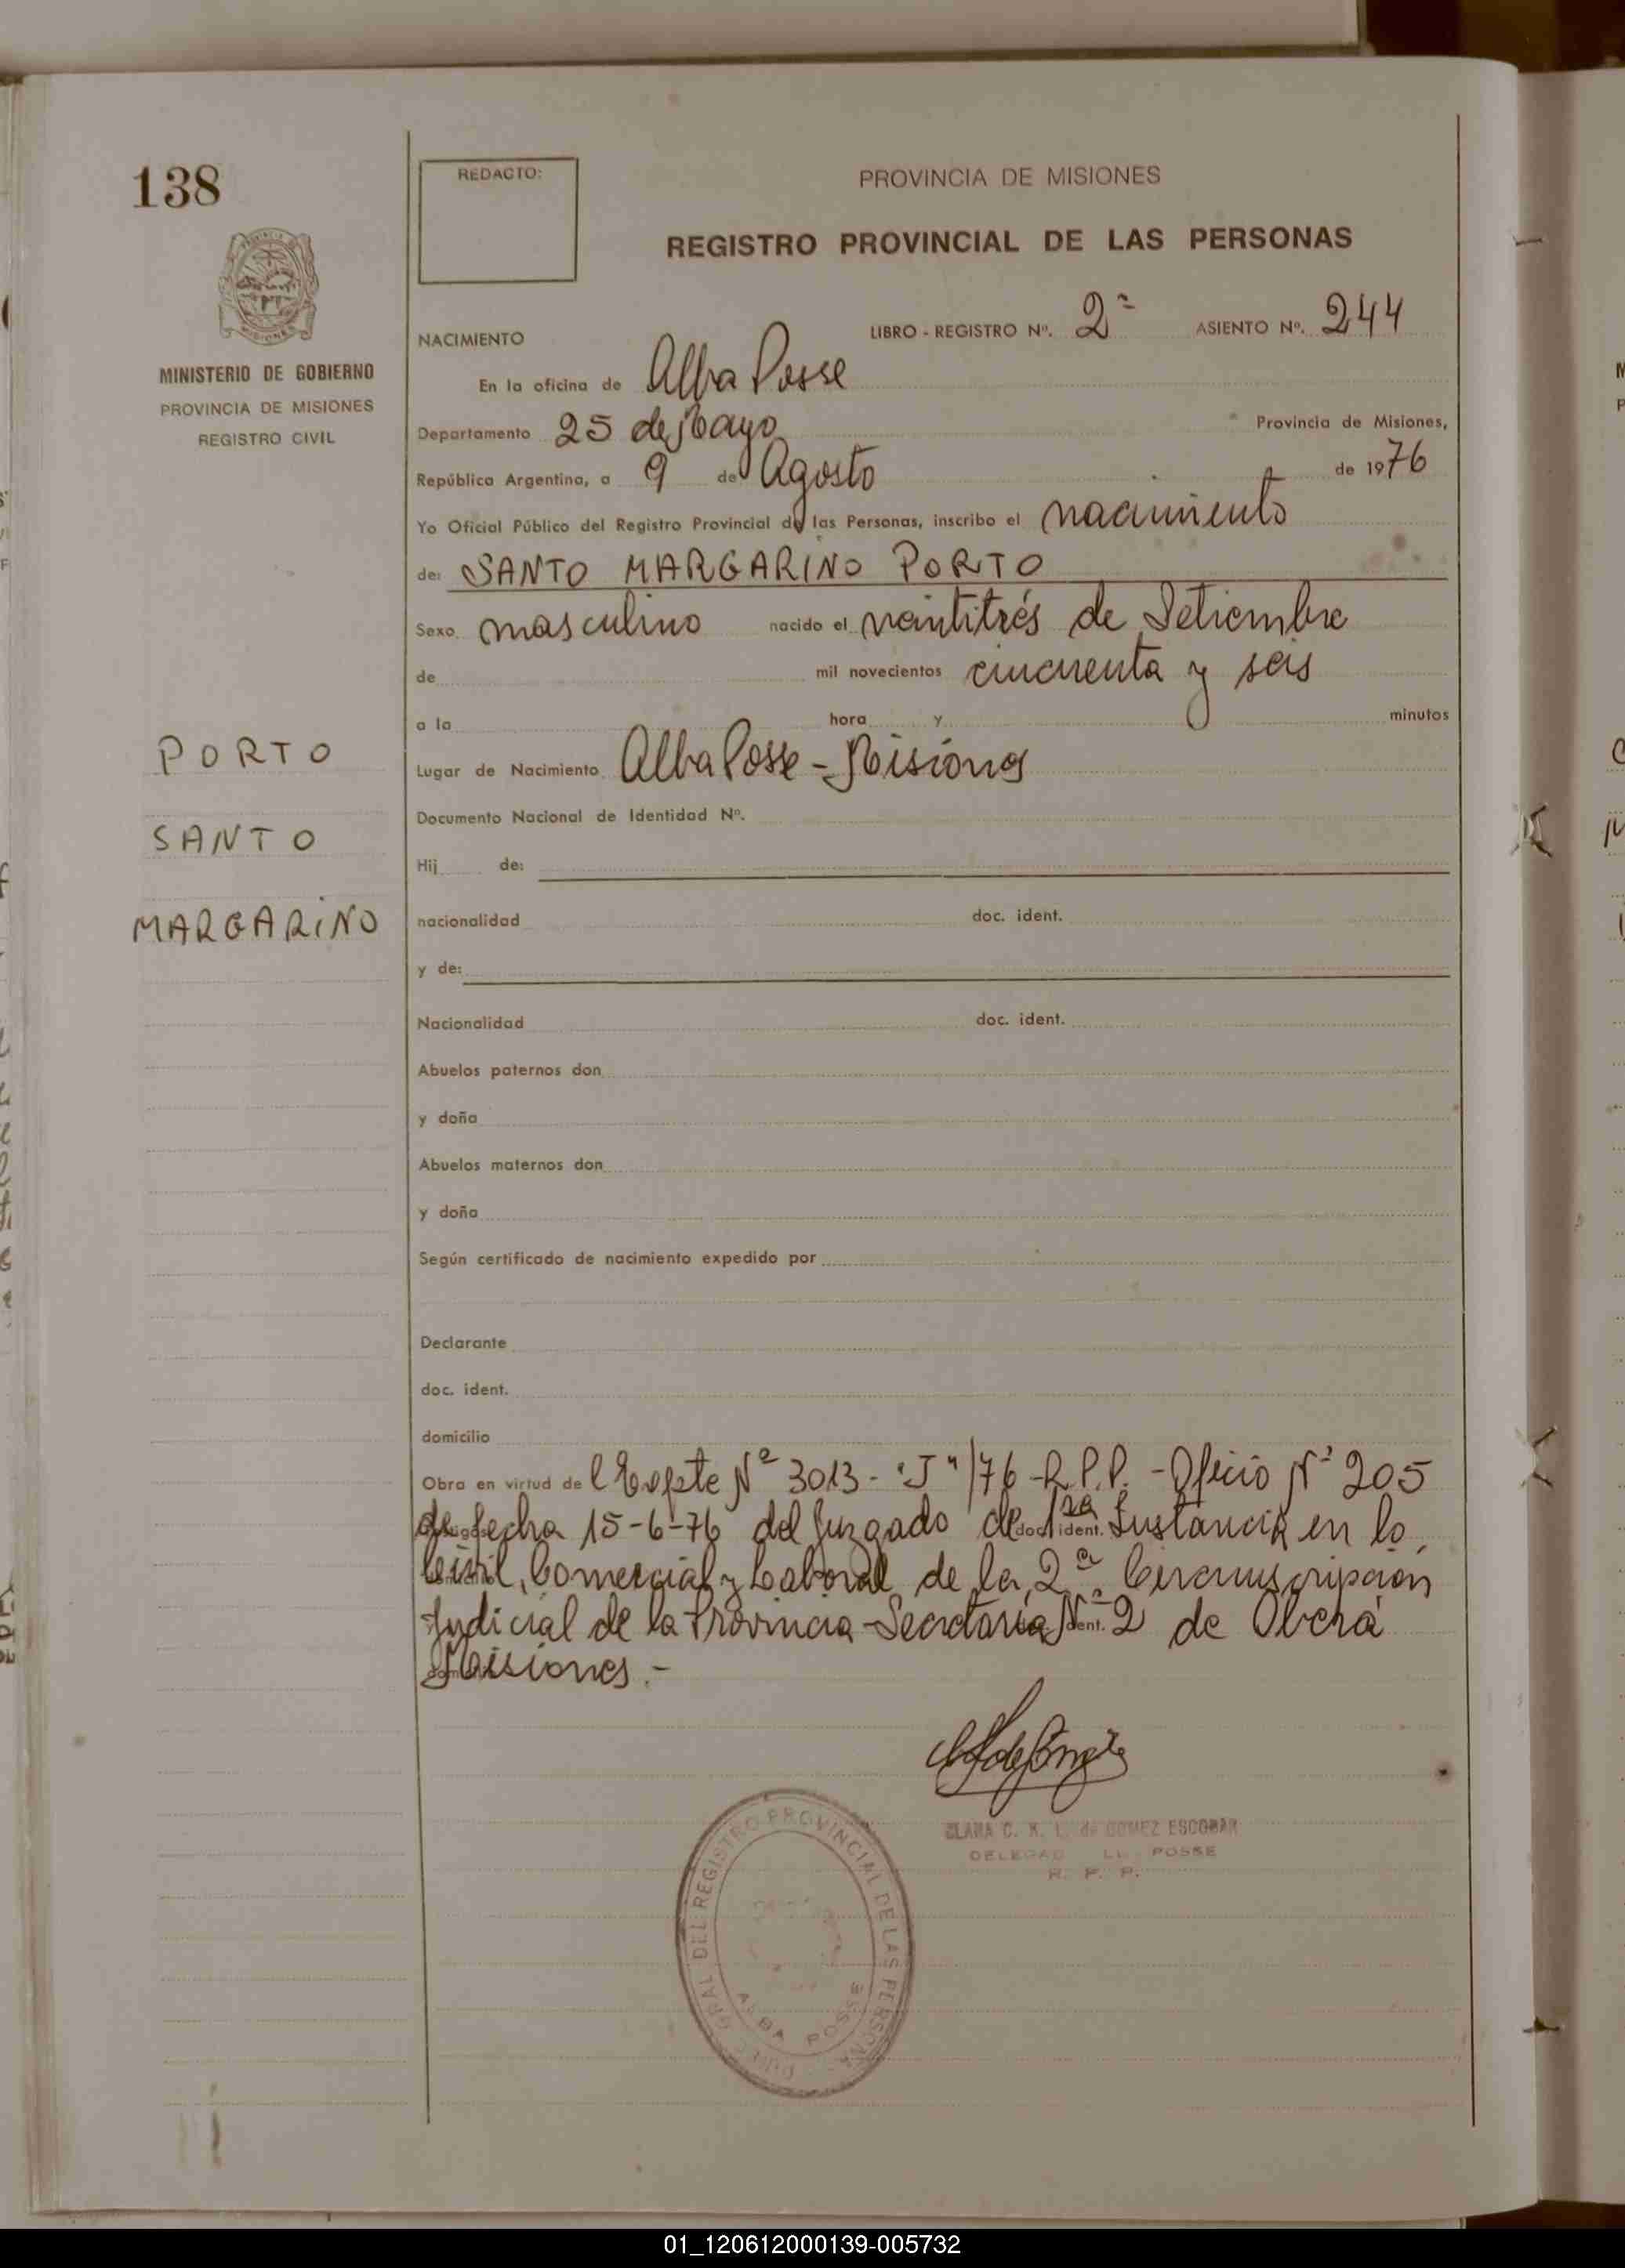 138
REDACTO:
PROVINCIA DE MISIONES
REGISTRO PROVINCIAL DE LAS PERSONAS
MINISTERIO DE GOBIERNO
PROVINCIA DE MISIONES
REGISTRO CIVIL
NACIMIENTO LIBRO - REGISTRO Nº. 2º ASIENTO Nº. 244
En la oficina de Alba Posse
Departamento 25 de Mayo Provincia de Misiones,
República Argentina, a 9 de Agosto de 1976
Yo Oficial Público del Registro Provincial de las Personas, inscribo el nacimiento
de: SANTO MARGARINO PORTO
Sexo masculino nacido el veintitrés de Setiembre
de mil novecientos cincuenta y seis
a la hora y minutos
PORTO
SANTO
MARGARINO
Lugar de Nacimiento Alba Posse - Misiones
Documento Nacional de Identidad Nº.
Hij de:
nacionalidad doc. ident.
y de:
Nacionalidad doc. ident.
Abuelos paternos don
y doña
Abuelos maternos don
y doña
Según certificado de nacimiento expedido por
Declarante
doc. ident.
domicilio
Obra en virtud de l Expte Nº 3013 - "J" /76 - R.P.P. - Oficio Nº 205
de fecha 15-6-76 del Juzgado de 1ra doc. ident. Instancia en lo
Civil, Comercial y Laboral de la 2ª Circunscripción
Judicial de la Provincia - Secretaría Nº ident. 2 de Oberá
Misiones.-
CLARA C. de GOMEZ ESCOBAR
POSSE
R. P. P.
DEL REGISTRO PROVINCIAL DE LAS PERSONAS
ALBA POSSE
01_120612000139-005732